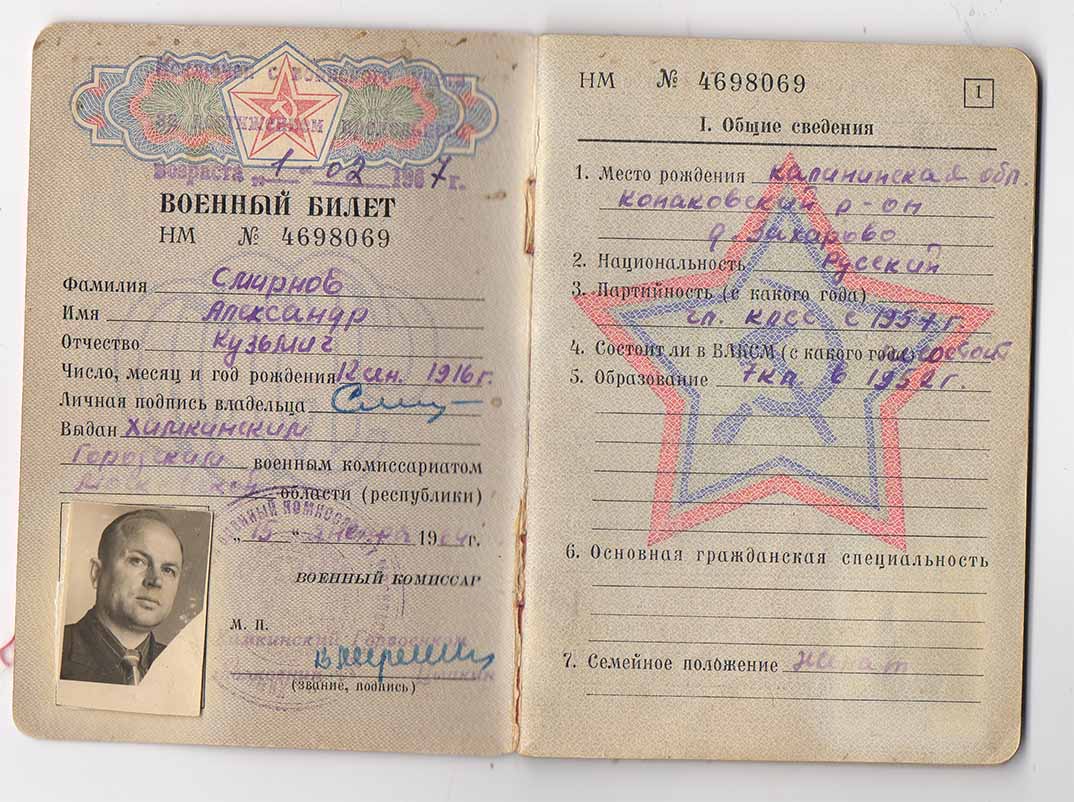 с воинского учета
за достижением
возраста „1“ 02 1967 г.
ВОЕННЫЙ БИЛЕТ
НМ № 4698069
Фамилия Смирнов
Имя Александр
Отчество Кузьмич
Число, месяц и год рождения 12 сен. 1916 г.
Личная подпись владельца
Выдан Химкинским
Городским военным комиссариатом
области (республики)
„15“ 19 г.
ВОЕННЫЙ КОМИССАР
М. П.
Химкинский Горвоенком
(звание, подпись)
НМ № 4698069
1
I. Общие сведения
1. Место рождения Калининская обл.
Конаковский р-он
д. Захарово
2. Национальность Русский
3. Партийность (с какого года)
чл. КПСС с 1957 г.
4. Состоит ли в ВЛКСМ (с какого года) не состоит
5. Образование 7 кл. в 1952 г.
6. Основная гражданская специальность
7. Семейное положение женат